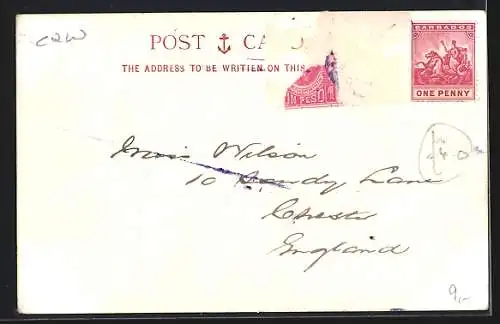 C2W
POST CA
THE ADDRESS TO BE WRITTEN ON THIS
BARBADOS
ONE PENNY
Miss Wilson
10 Handy Lane
Chester
England
9,-